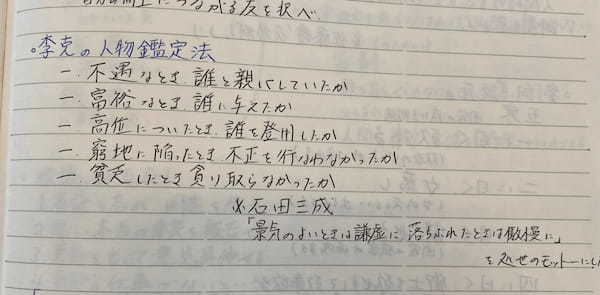 自分の向上につながる友を択べ
○李克の人物鑑定法
一、不遇なとき誰と親しくしていたか
一、富裕なとき誰に与えたか
一、高位についたとき誰を登用したか
一、窮地に陥ったとき不正を行なわなかったか
一、貧乏したとき貪り取らなかったか
※石田三成
「景気のよいときは謙虚に、落ちぶれたときは傲慢に」
を処世のモットーにし